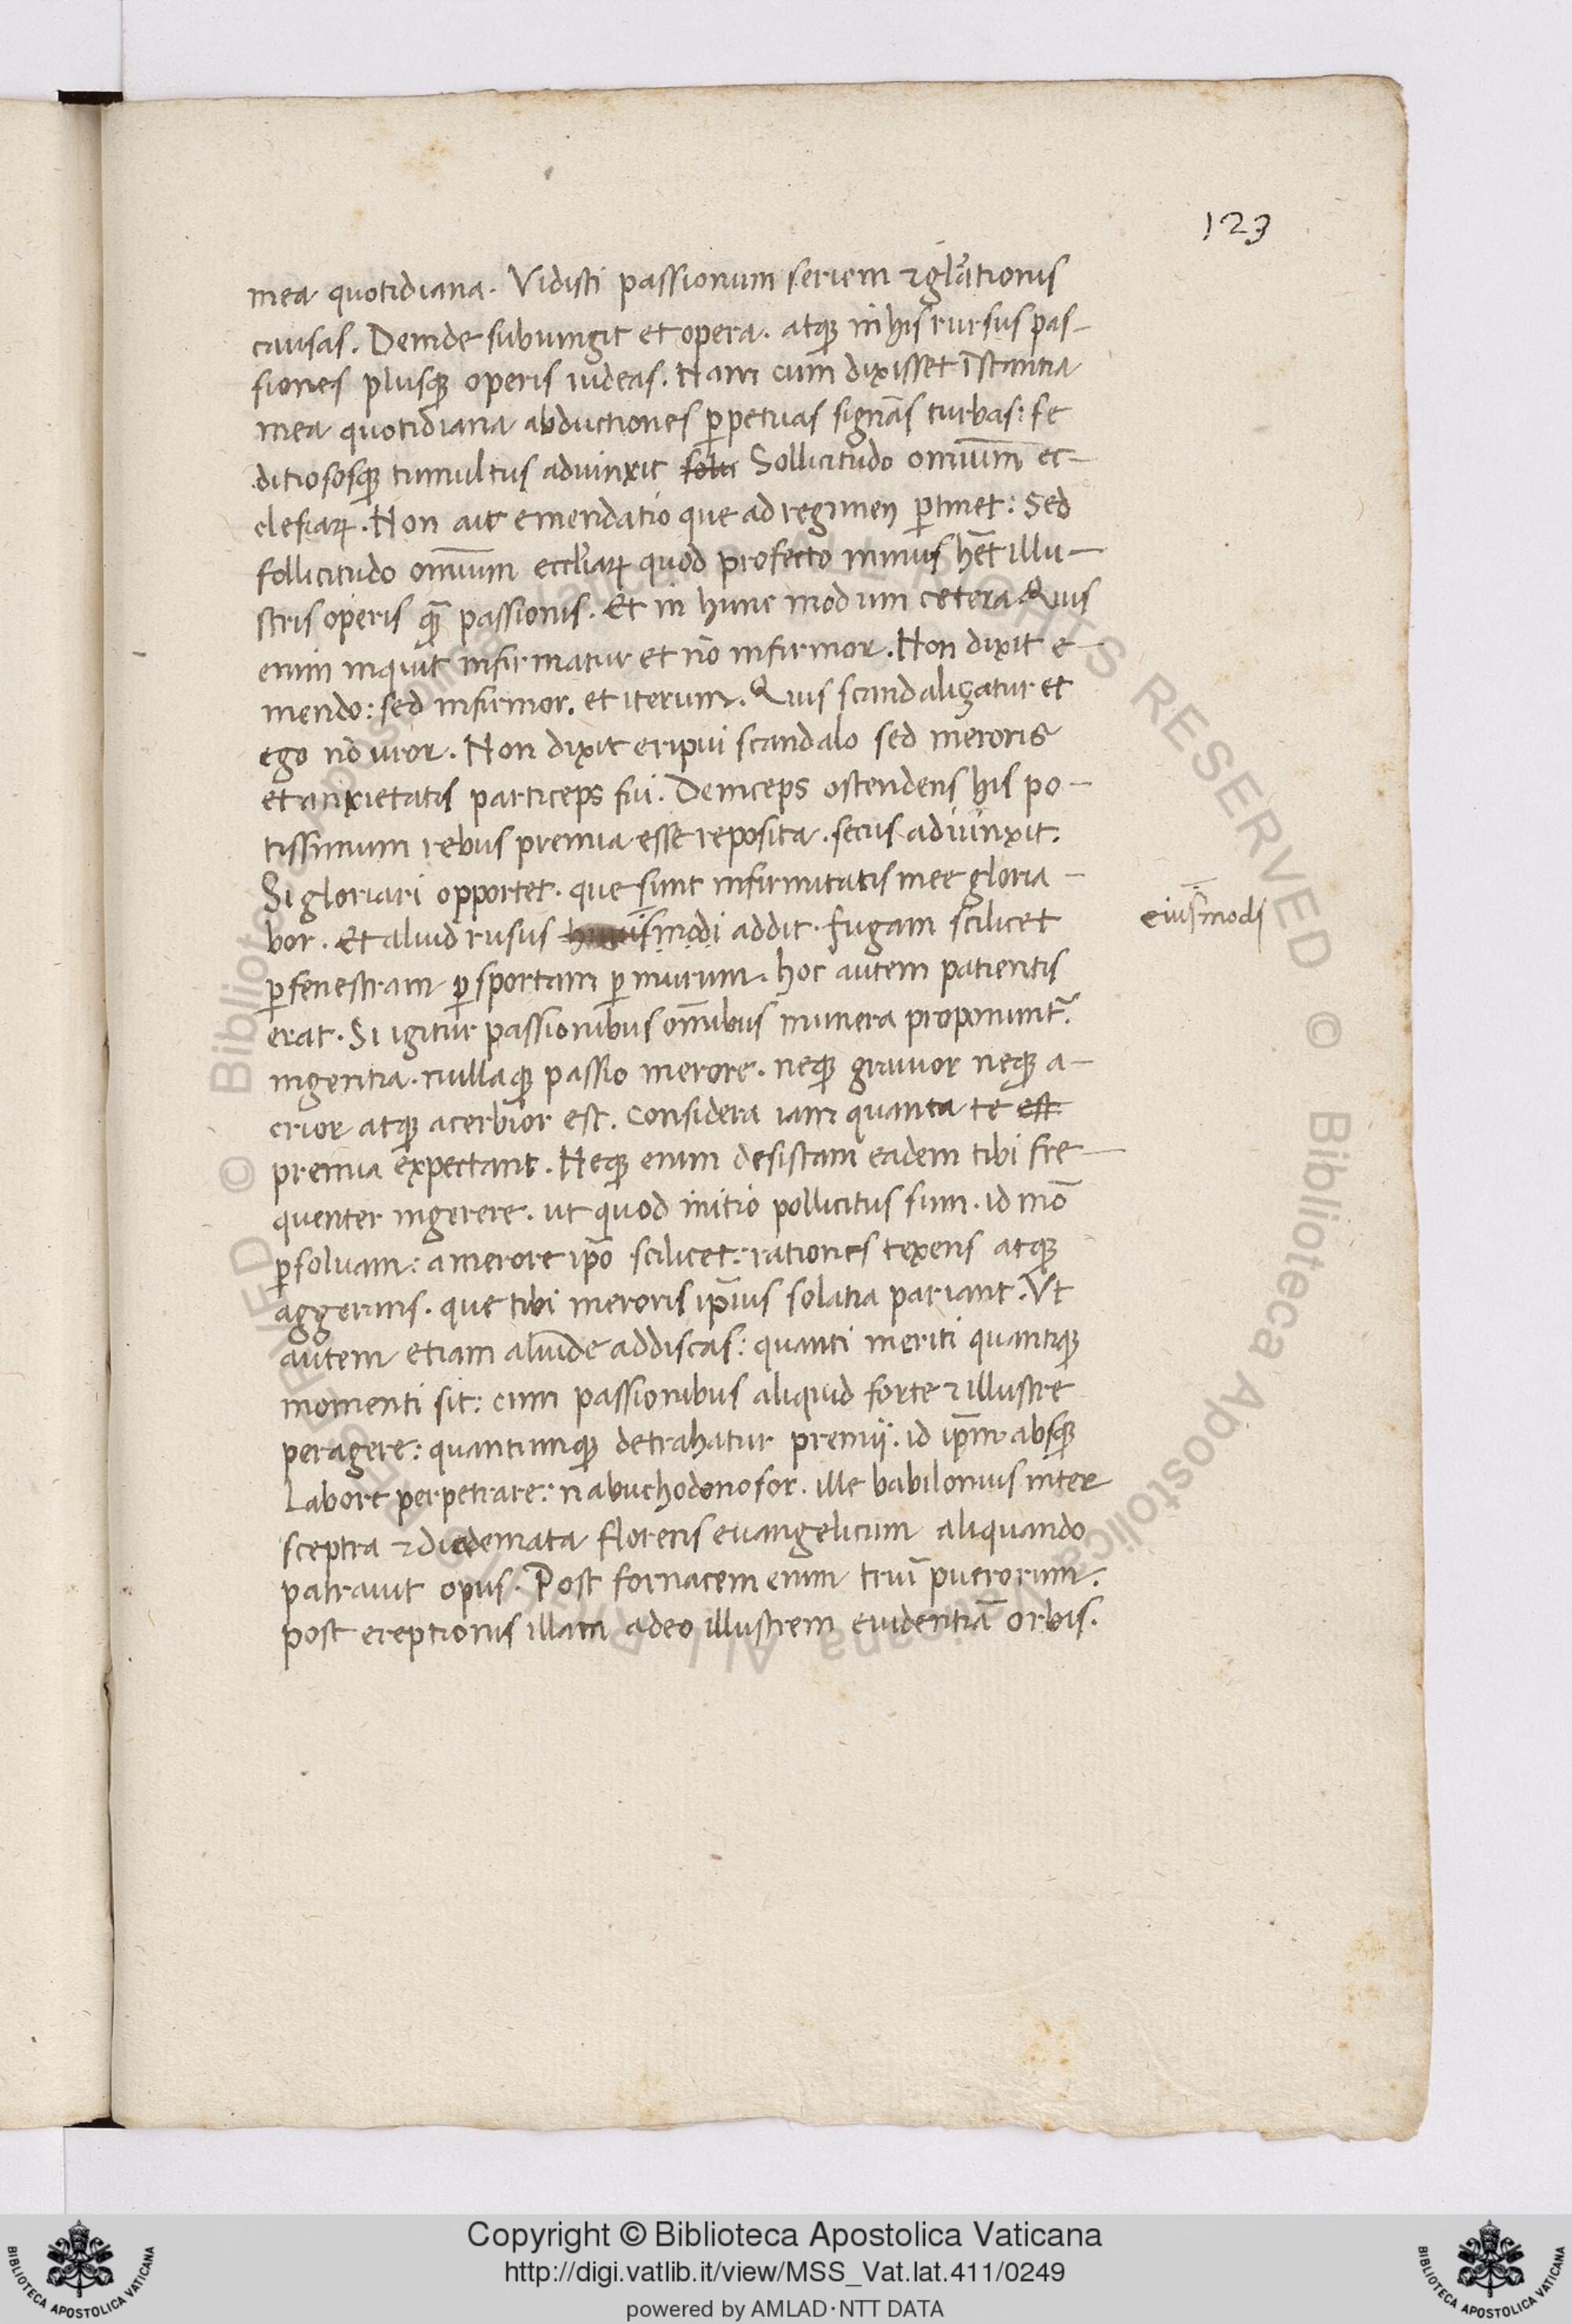 123
mea quotidiana. Vidisti passionum seriem ⁊ gl̃ationis
causas. Deinde subiungit et opera. atqꝫ in his rursus pas-
siones plusqꝫ operis uideas. Nam cum dixisset ĩstantia
mea quotidiana abductiones ꝑpetuas signãs turbas: se
ditiososqꝫ tumultus adiunxit solic Sollicitudo omiũm ec-
clesiaꝝ. Non ait emendatio que ad regimen ꝑtinet: Sed
sollicitudo omiũm eccl̃iaꝝ quod profecto minus hẽt illu-
stris operis qã passionis. Et in hunc modum cetera Quis
enim inquit infirmatur et nõ infirmor. Non dixit e-
mendo: sed infirmor. et iterum. Quis scandalizatur et
ego nõ uror. Non dixit eripui scandalo sed meroris
et anxietatis particeps fui. Deinceps ostendens his po-
tissimum rebus premia esse reposita. secus adiunxit.
Si gloriari opportet. que sunt infirmitatis mee gloria-
bor. Et aliud rusus huiusmodi addit. fugam scilicet
eiusmodi
ꝑ fenestram ꝑ sportam ꝑ murum. hoc autem patientis
erat. Si igitur passionibus om̃ibus munera proponunt᷑
ingentia. nullaqꝫ passio merore. neqꝫ grauior neqꝫ a-
crior atqꝫ acerbior est. Considera iam quanta te est
premia expectant. Neqꝫ enim desistam eadem tibi fre-
quenter ingerere. ut quod initio pollicitus sum. id mõ
ꝑsoluam: a merore ip̃o scilicet: rationes texens atqꝫ
aggerens. que tibi meroris ip̃ius solatia pariant. Vt
autem etiam aliunde addiscas: quanti meriti quantiqꝫ
momenti sit: cum passionibus aliquid forte ⁊ illustre
peragere: quantumqꝫ detrahatur premij. id ip̃m absqꝫ
Labore perpetrare: nabuchodonosor. ille babilonius inter
sceptra ⁊ diademata florens euangelicum aliquando
patrauit opus. Post fornacem enim triũ puerorum.
post ereptionis illam adeo illustrem euidentiã orbis.
Copyright © Biblioteca Apostolica Vaticana
http://digi.vatlib.it/view/MSS_Vat.lat.411/0249
powered by AMLAD·NTT DATA